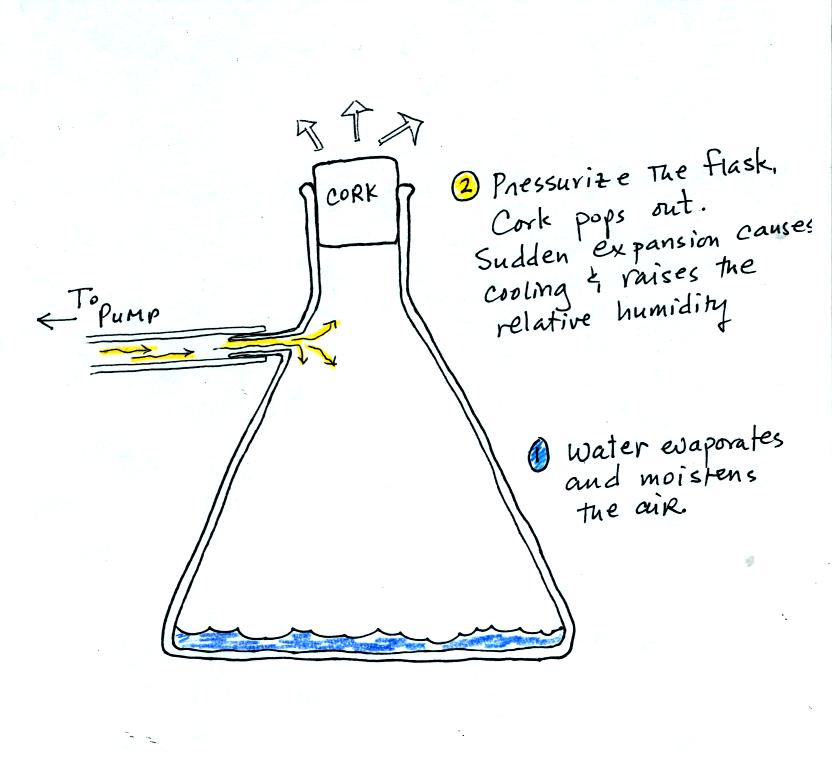 CORK
② Pressurize The flask,
Cork pops out.
Sudden expansion causes
cooling & raises the
relative humidity
To
Pump
① Water evaporates
and moistens
the air.